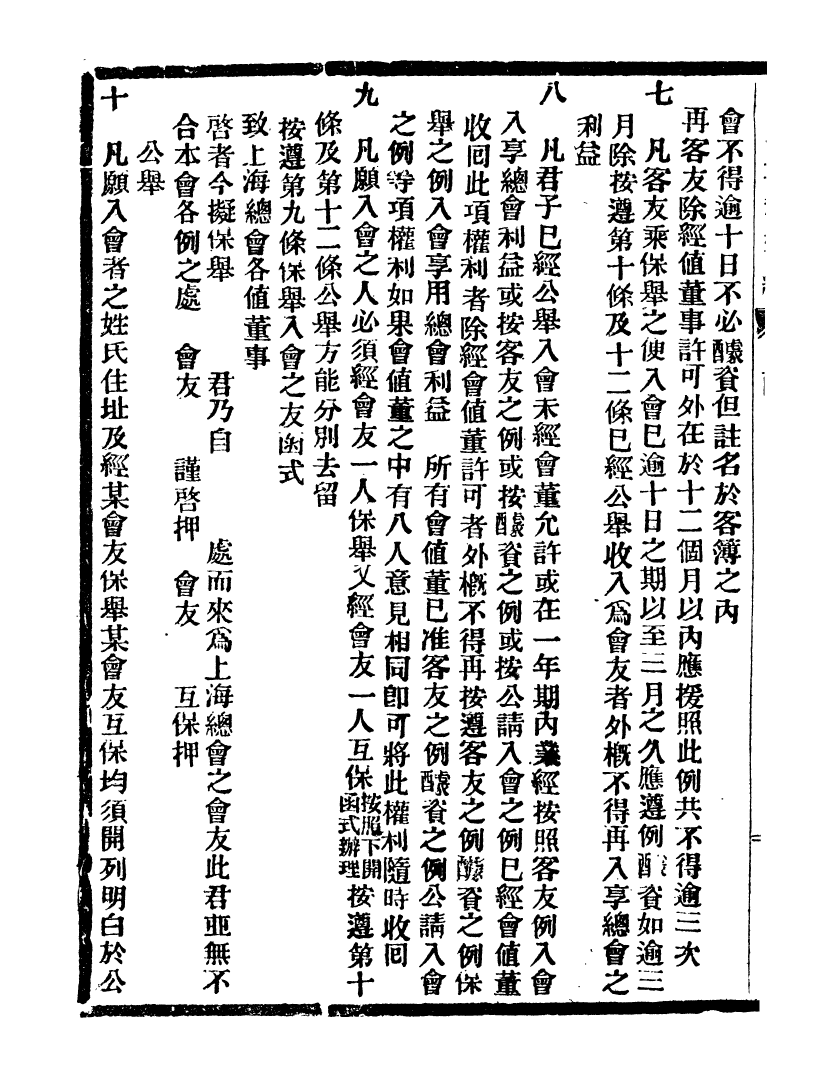 會不得逾十日不必醵資但註名於客簿之內
再客友除經值董事許可外在於十二個月以內應援照此例共不得逾三次
七　凡客友乘保舉之便入會已逾十日之期以至三月之久應遵例醵資如逾三
月除按遵第十條及十二條已經公舉收入爲會友者外概不得再入享總會之
利益
八　凡君子已經公舉入會未經會董允許或在一年期內業經按照客友例入會
入享總會利益或按客友之例或按醵資之例或按公請入會之例已經會值董
收回此項權利者除經會值董許可者外概不得再按遵客友之例醵資之例保
舉之例入會享用總會利益　所有會值董已准客友之例醵資之例公請入會
之例等項權利如果會值董之中有八人意見相同卽可將此權利隨時收回
九　凡願入會之人必須經會友一人保舉又經會友一人互保按照下開函式辦理按遵第十
條及第十二條公舉方能分別去留
按遵第九條保舉入會之友函式
致上海總會各值董事
啓者今擬保舉　　　君乃自　　　處而來爲上海總會之會友此君亟無不
合本會各例之處　會友　　謹啓押　會友　　互保押
公舉
十　凡願入會者之姓氏住址及經某會友保舉某會友互保均須開列明白於公
二